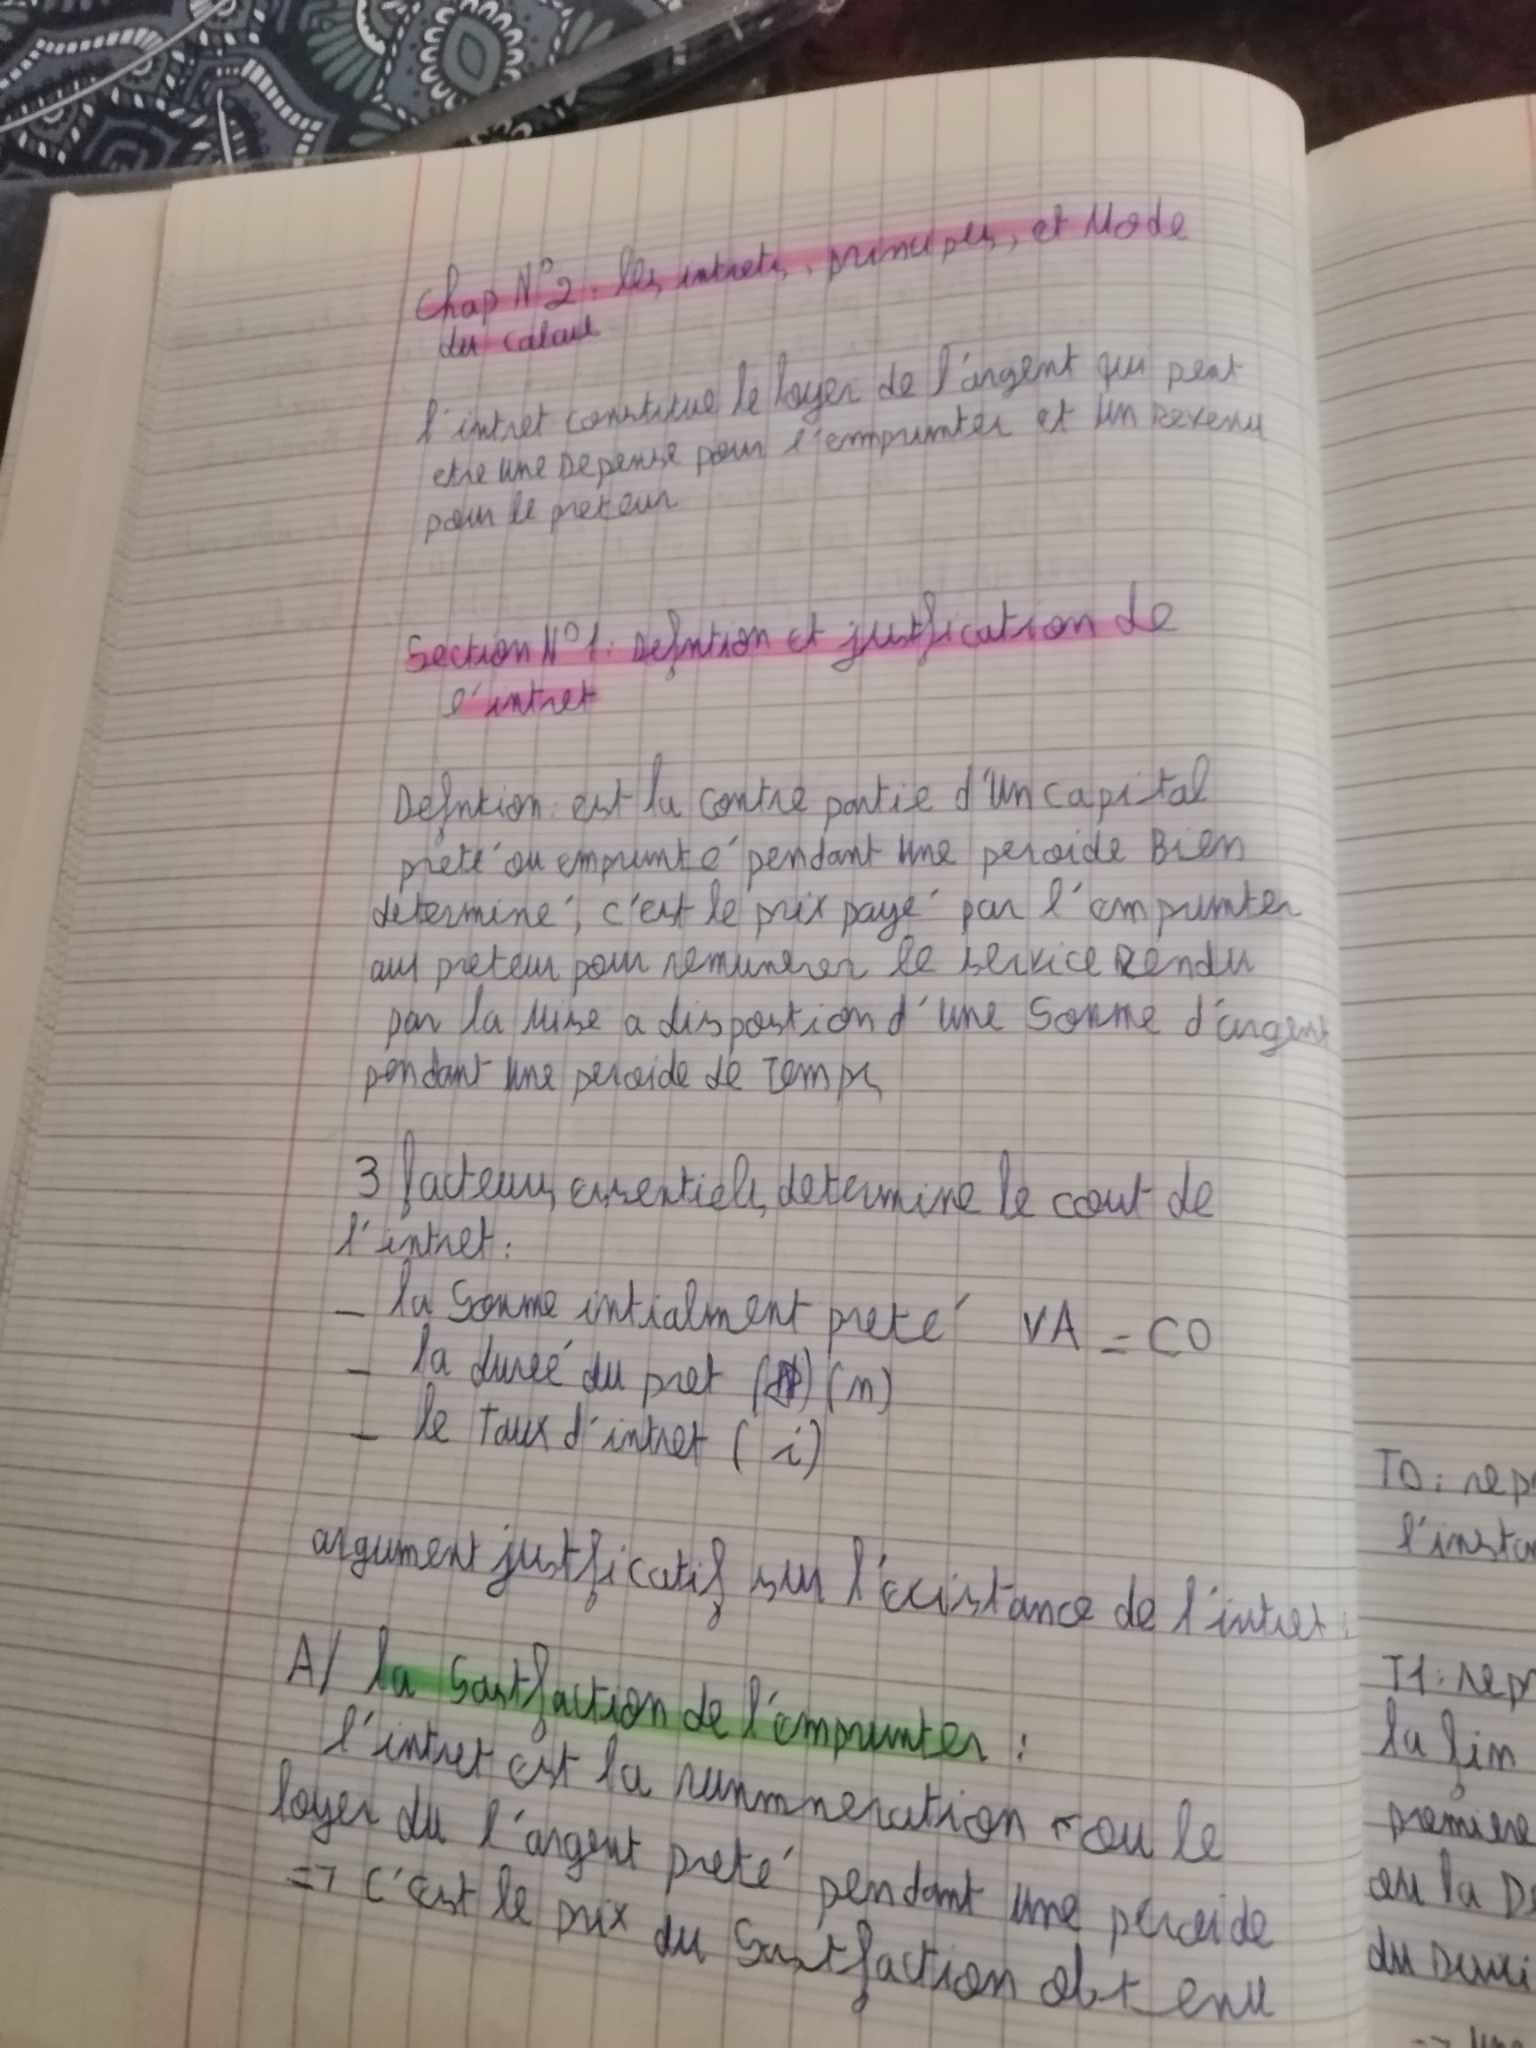 Chap N°2: les intrets, principes, et Mode
du calcul
l'intret constitue le loyer de l'argent qui peut
etre une Depense pour l'emprunter et un Revenu
pour le preteur
Section N°1: Defintion et justfication de
l'intret
Defintion: est la contre partie d'un capital
prété ou emprunté pendant une peroide Bien
determiné, c'est le prix payé par l'emprunter
au preteur pour remunerer le service Rendu
par la Mise a dispostion d'une Somme d'argent
pendant une peroide de Temps
3 facteurs essentiels determine le cout de
l'intret:
- la Somme intialment preté VA = C0
- la dureé du pret (n)
- le Taux d'intret (i)
argument justficatif sur l'existance de l'intret:
A/ la Sastfaction de l'emprunter :
l'intret est la runmneration ou le
loyer du l'argent preté pendant une peroide
=> C'est le prix du Sastfaction obtenu
T0: rep
l'insta
T1: rep
la fin
premiere
ou la D
du Deuxi